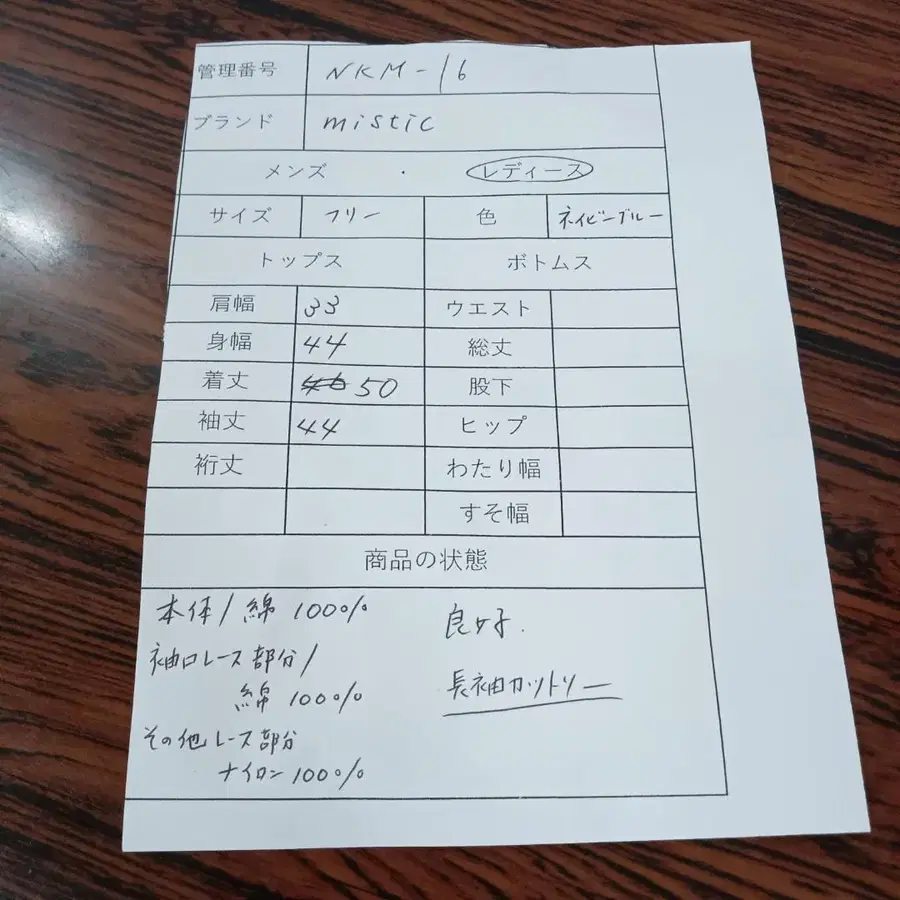 管理番号 NKM-16
ブランド mistic
メンズ ・ レディース
サイズ フリー 色 ネイビーブルー
トップス ボトムス
肩幅 33 ウエスト
身幅 44 総丈
着丈 46 50 股下
袖丈 44 ヒップ
裄丈 わたり幅
すそ幅
商品の状態
本体/綿 100%
袖口レース部分/
綿 100%
その他レース部分
ナイロン100%
良好.
長袖カットソー